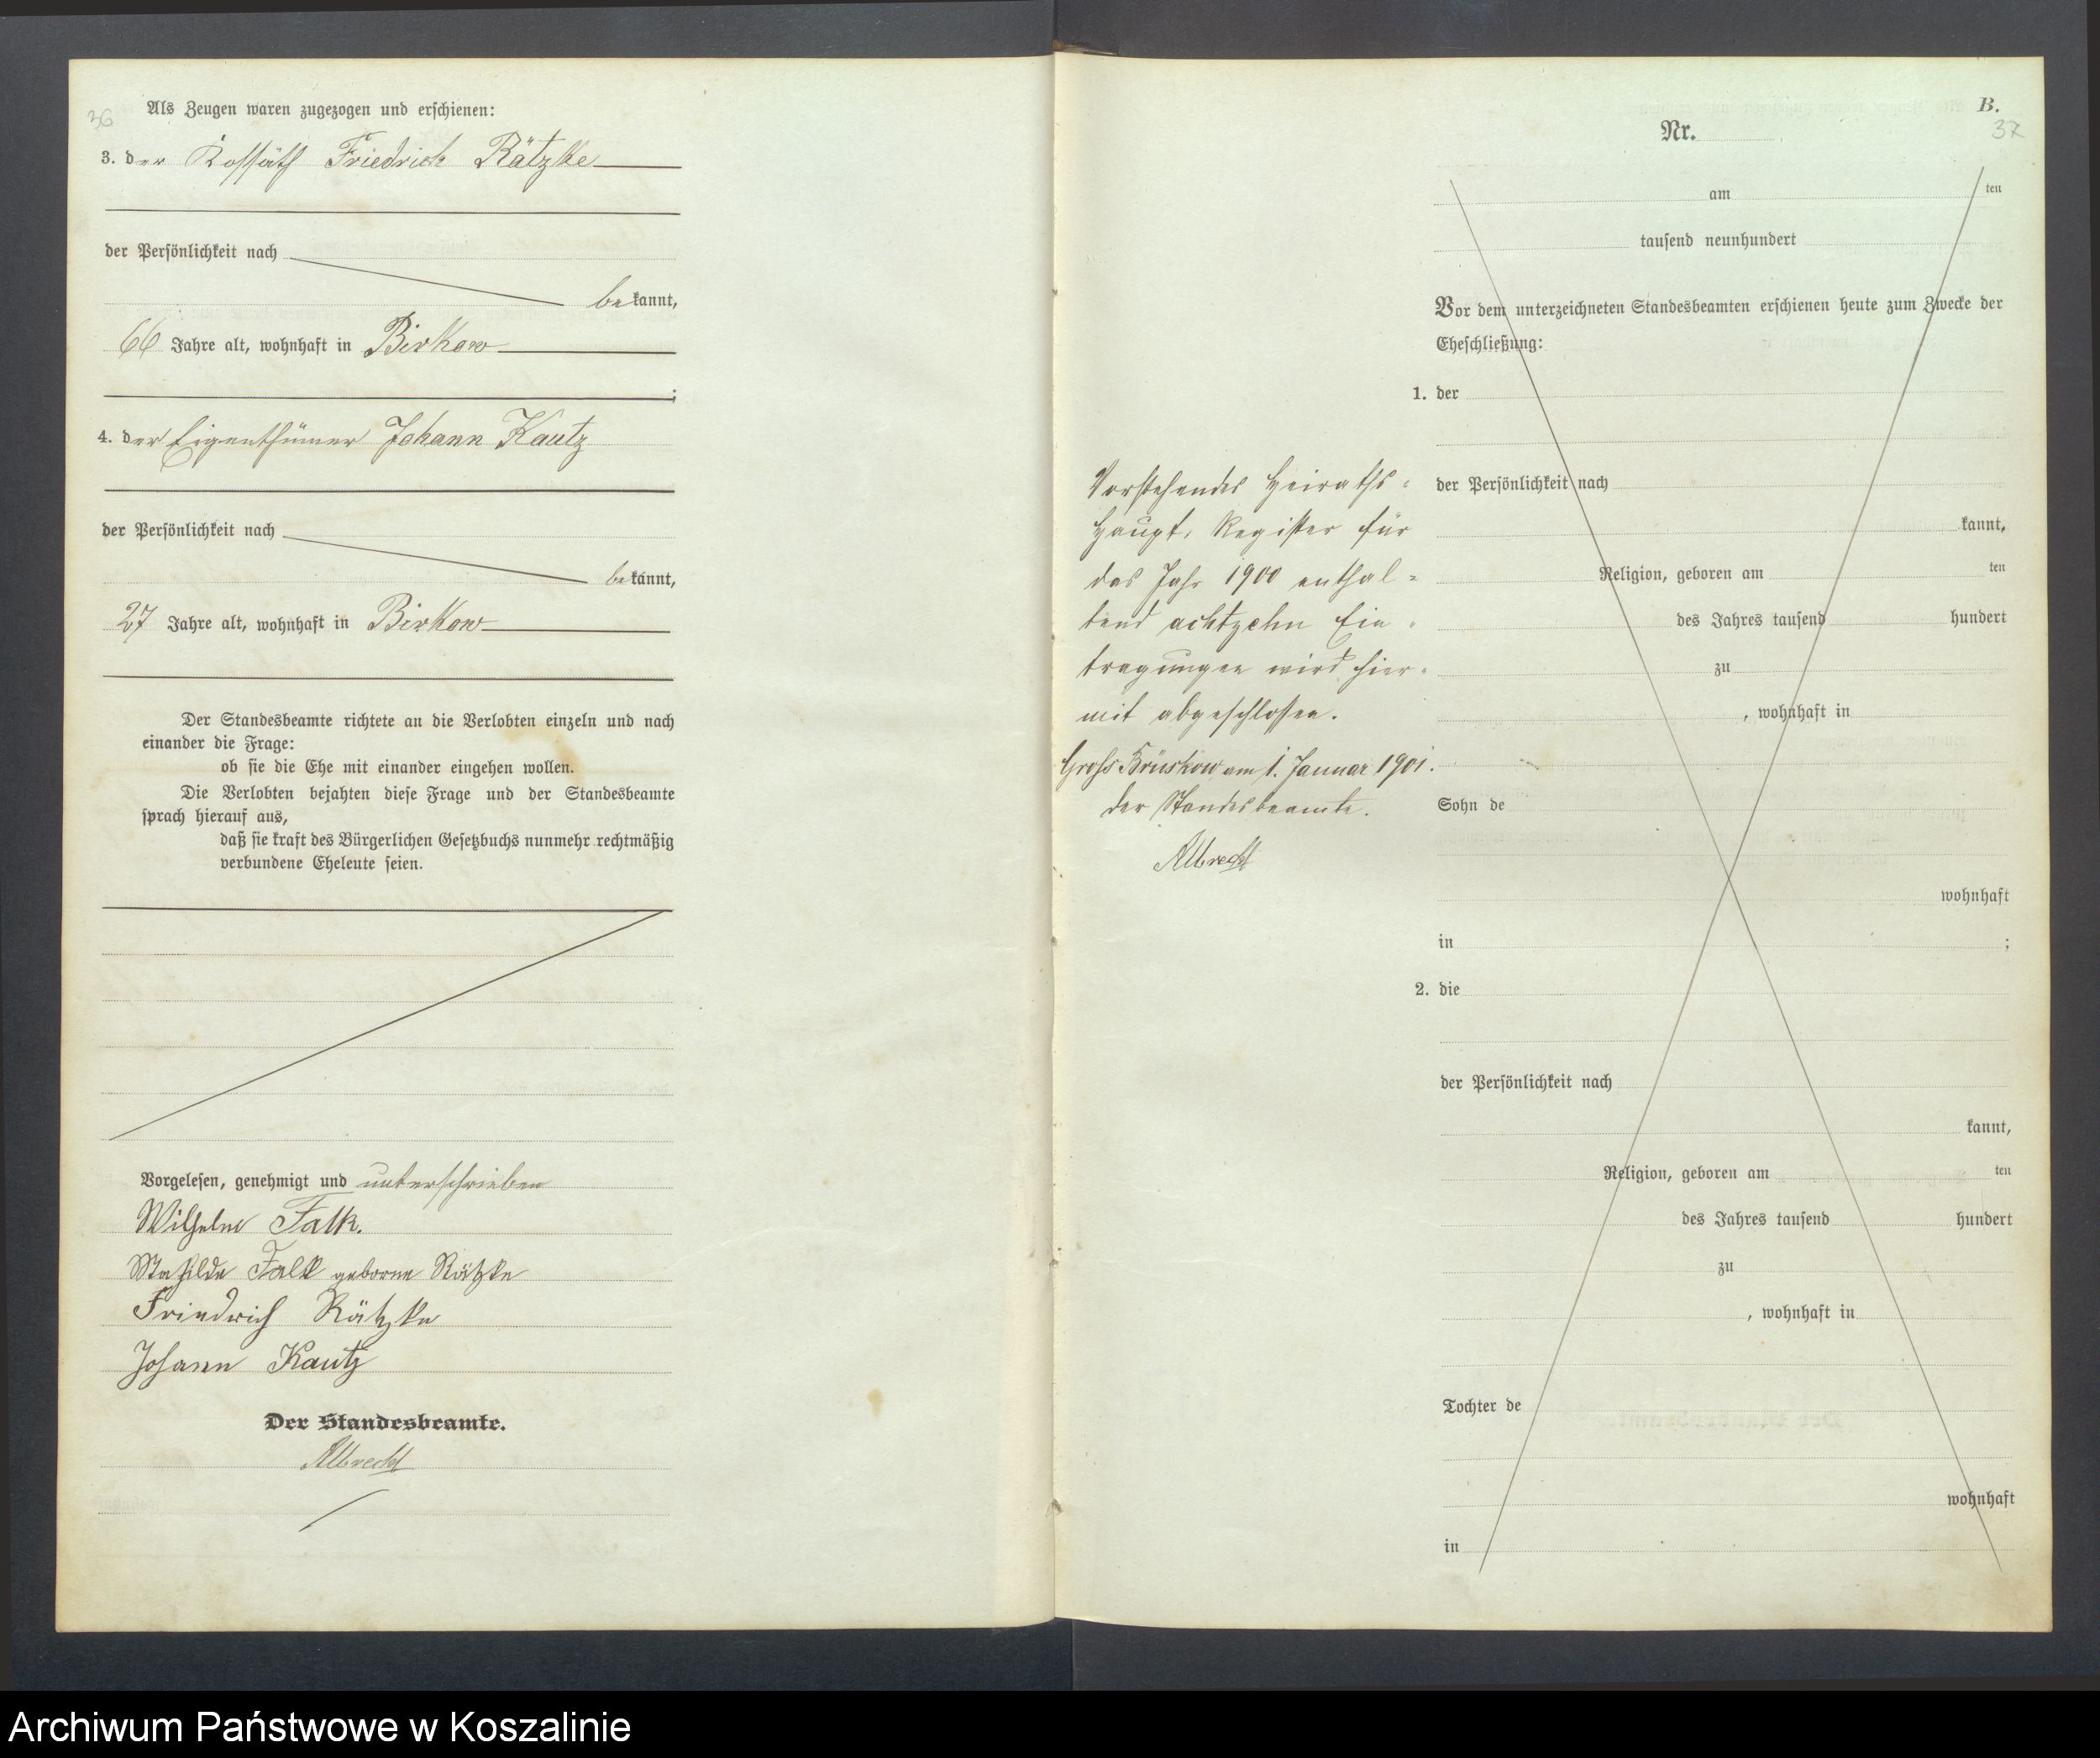 36
Als Zeugen waren zugezogen und erschienen:
3. der Kossäth Friedrich Rätzke
der Persönlichkeit nach
bekannt,
66 Jahre alt, wohnhaft in Birkow
;
4. der Eigenthümer Johann Kautz
der Persönlichkeit nach
bekannt,
27 Jahre alt, wohnhaft in Birkow
Der Standesbeamte richtete an die Verlobten einzeln und nach
einander die Frage:
ob sie die Ehe mit einander eingehen wollen.
Die Verlobten bejahten diese Frage und der Standesbeamte
sprach hierauf aus,
daß sie kraft des Bürgerlichen Gesetzbuchs nunmehr rechtmäßig
verbundene Eheleute seien.
Vorgelesen, genehmigt und unterschrieben
Wilhelm Falk.
Mathilde Falk geborne Rätzke
Friedrich Rätzke
Johann Kautz
Der Standesbeamte.
Albrecht
Vorstehendes Heiraths-
Haupt-Register für
das Jahr 1900 enthal-
tend achtzehn Ein-
tragungen wird hier-
mit abgeschlossen.
Gross Brüskow am 1. Januar 1901.
der Standesbeamte.
Albrecht
B.
37
Nr.
am ten
tausend neunhundert
Vor dem unterzeichneten Standesbeamten erschienen heute zum Zwecke der
Eheschließung:
1. der
der Persönlichkeit nach
kannt,
Religion, geboren am ten
des Jahres tausend hundert
zu
, wohnhaft in
Sohn de
wohnhaft
in ;
2. die
der Persönlichkeit nach
kannt,
Religion, geboren am ten
des Jahres tausend hundert
zu
, wohnhaft in
Tochter de
wohnhaft
in
Archiwum Państwowe w Koszalinie